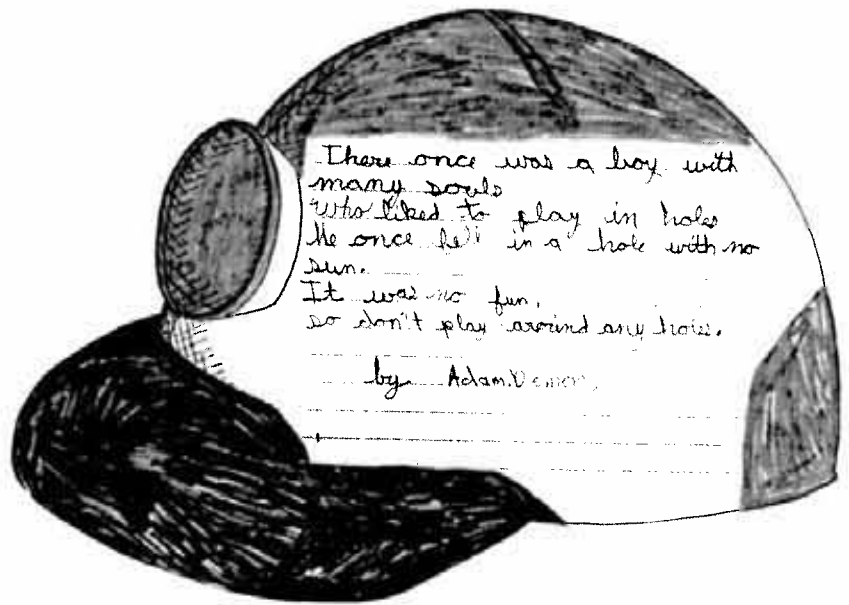 There once was a boy with
many souls
who liked to play in holes
He once fell in a hole with no
sun.
It was no fun,
so don't play around any holes.
by Adam